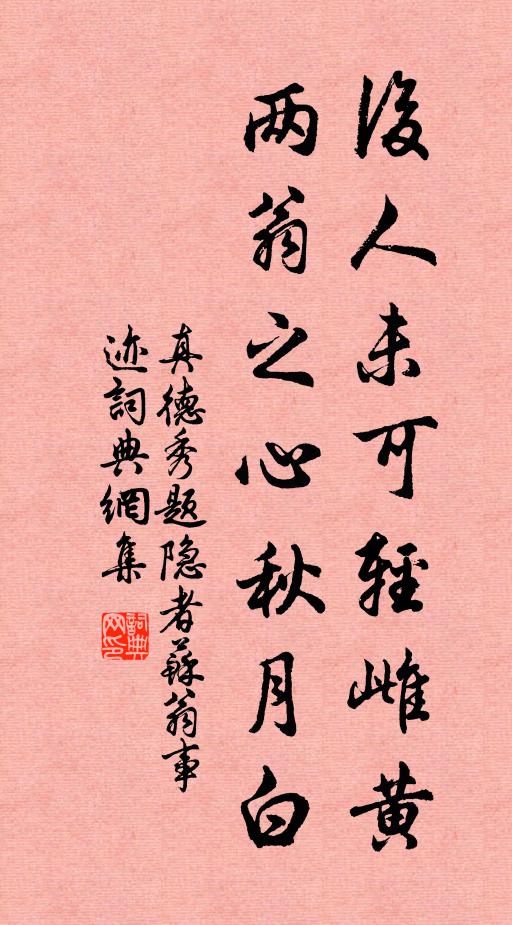 後人未可輕雌黄
两翁之心秋月白
真德秀题隐者蘇翁事
迹詞典網集
詞典
网印